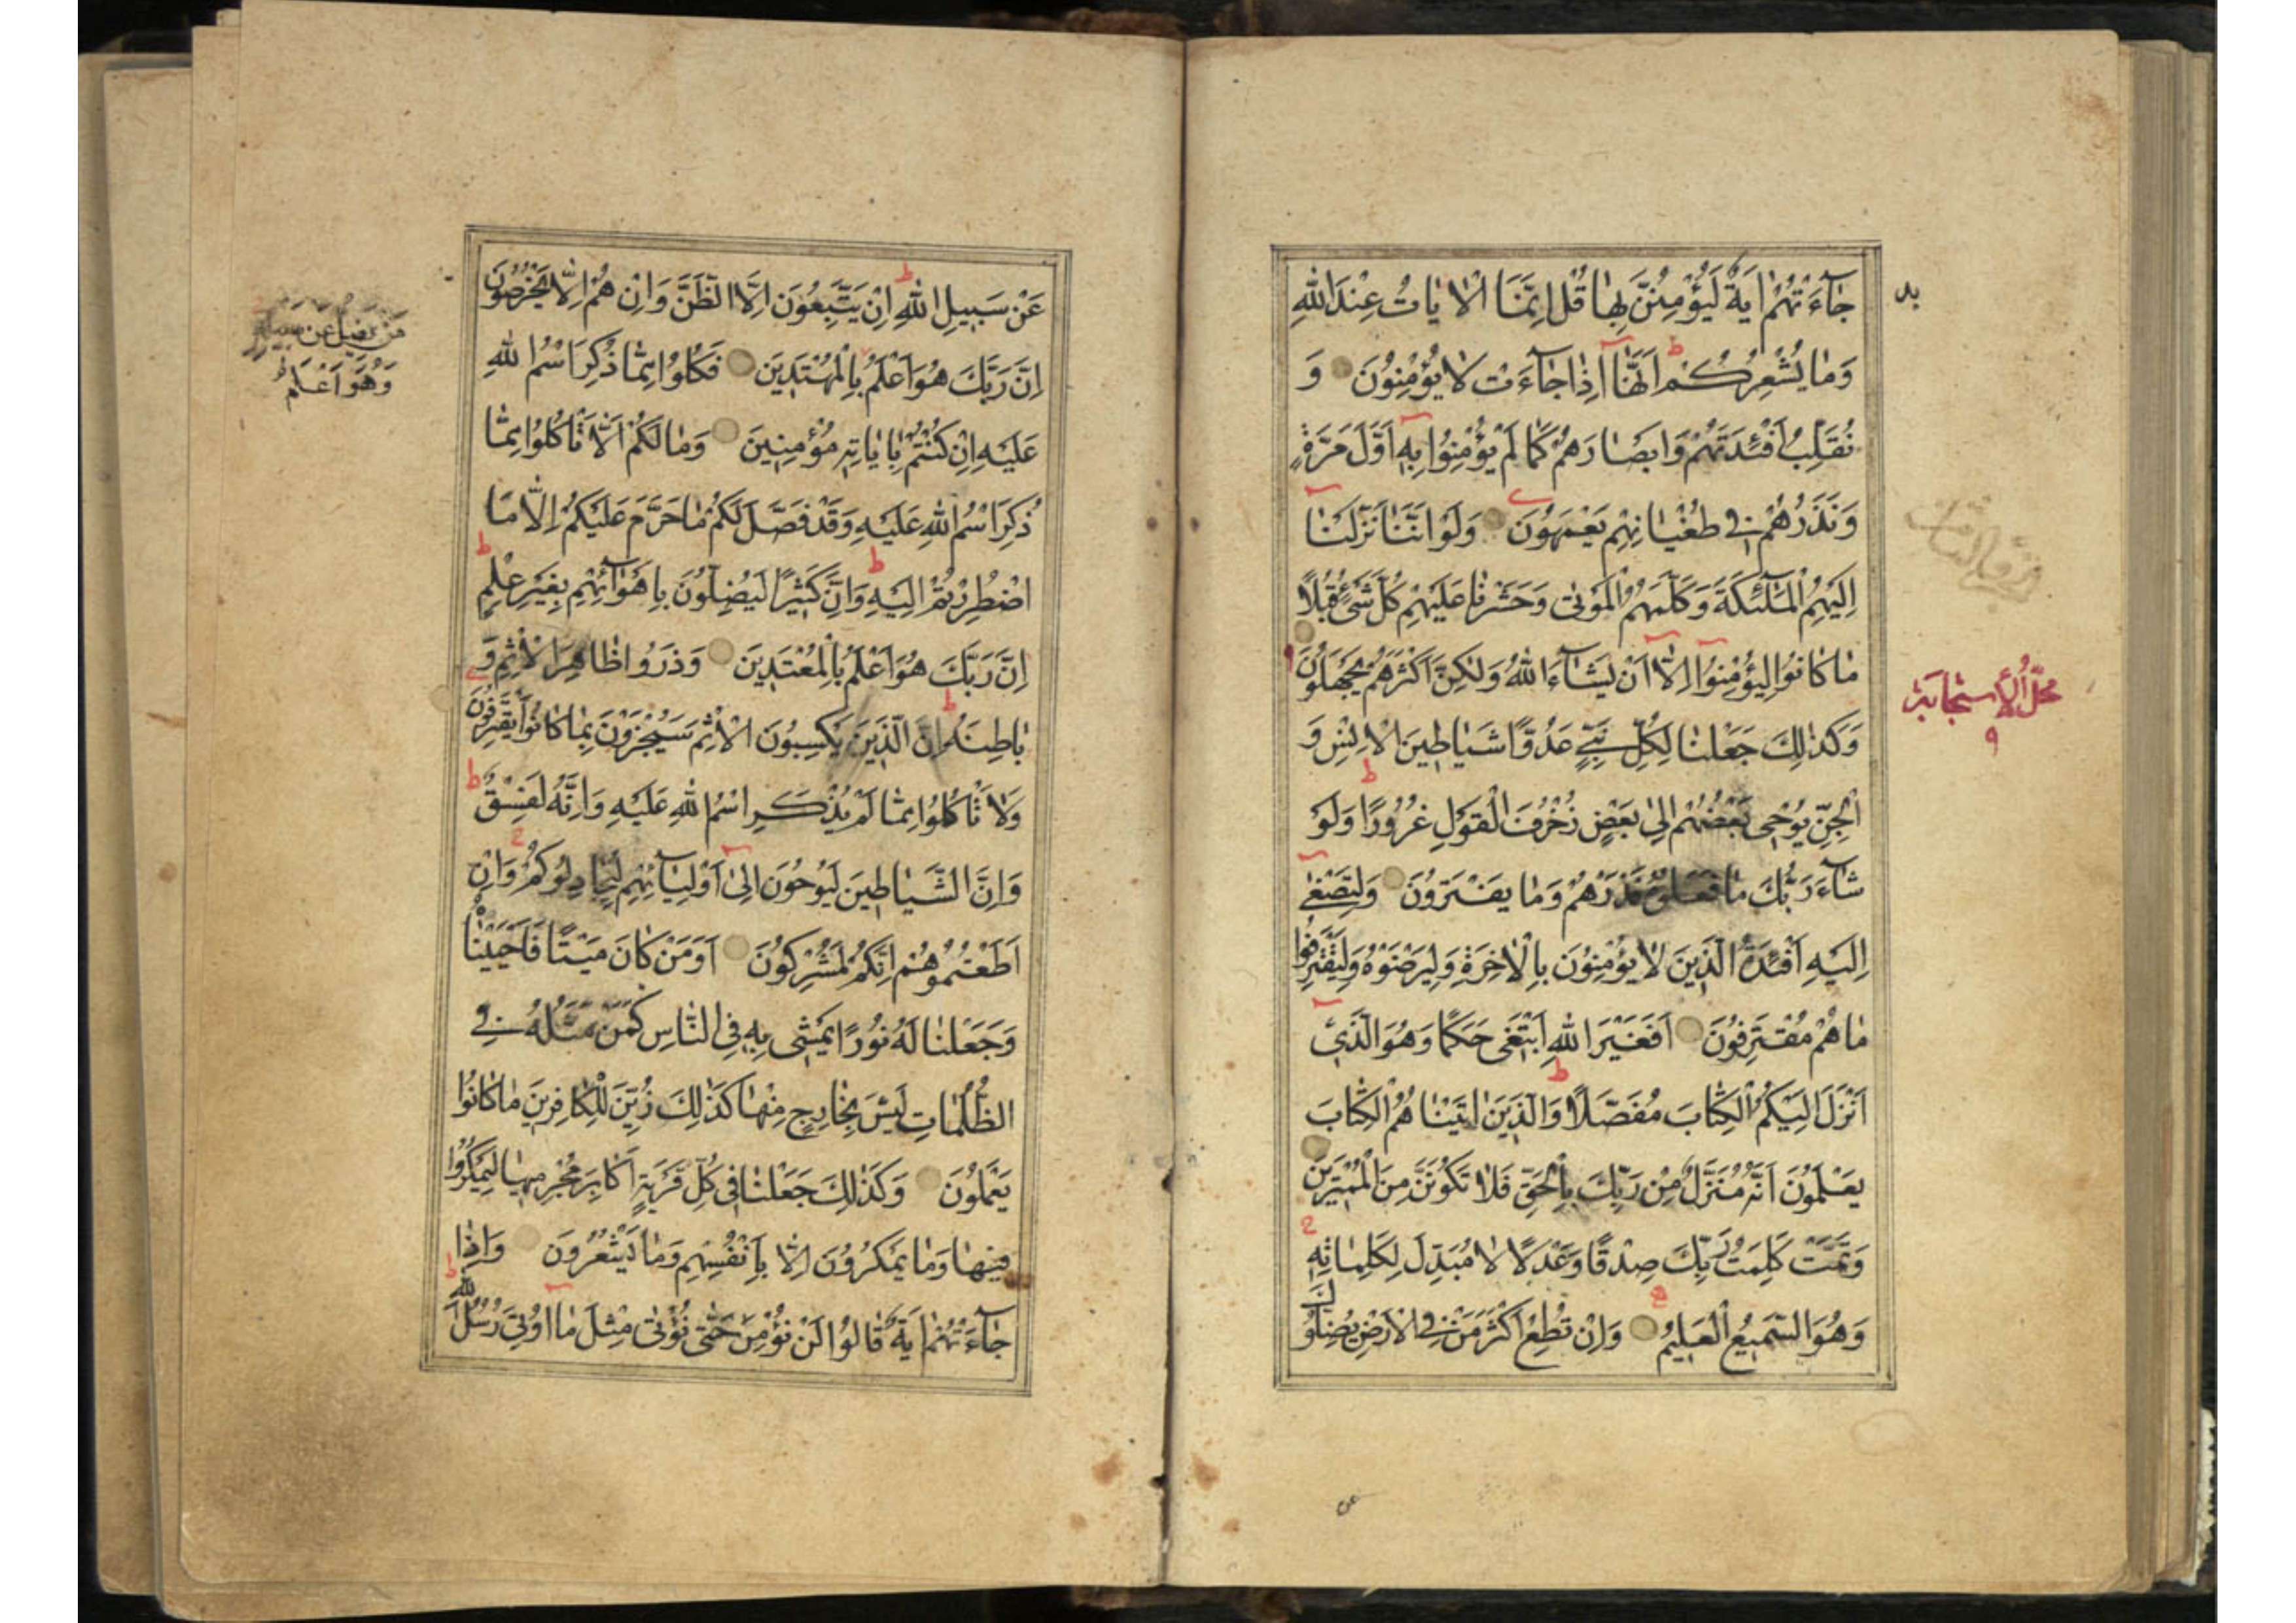 جاءَتْهُمْ ايَةٌ لَيُؤْمِنُنَّ بِها قُلْ اِنَّمَا الْاياتُ عِنْدَ اللهِ
وَما يُشْعِرُكُمْ اَنَّها اِذا جاءَتْ لا يُؤْمِنُونَ وَ
نُقَلِّبُ اَفْئِدَتَهُمْ وَابَصْارَهُمْ كَما لَمْ يُؤْمِنُوا بِهِ اَوَّلَ مَرَّةٍ
وَنَذَرُهُمْ فِي طُغْيانِهِمْ يَعْمَهُونَ وَلَوْ اَنَّنا نَزَّلْنا
اِلَيْهِمُ الْمَلٰئِكَةَ وَكَلَّمَهُمُ الْمَوْتى وَحَشَرْنا عَلَيْهِمْ كُلَّ شَيْءٍ قُبُلًا
ما كانُوا لِيُؤْمِنُوا اِلَّا اَنْ يَشاءَ اللهُ وَلكِنَّ اَكْثَرَهُمْ يَجْهَلُونَ
وَكَذلِكَ جَعَلْنا لِكُلِّ نَبِيٍّ عَدُوًّا شَياطِينَ الْاِنْسِ وَ
الْجِنِّ يُوحِى بَعْضُهُمْ اِلى بَعْضٍ زُخْرُفَ الْقَوْلِ غُرُورًا وَلَوْ
شاءَ رَبُّكَ ما فَعَلُوهُ فَذَرْهُمْ وَما يَفْتَرُونَ وَلِتَصْغى
اِلَيْهِ اَفْئِدَةُ الَّذِينَ لا يُؤْمِنُونَ بِالْاخِرَةِ وَلِيَرْضَوْهُ وَلِيَقْتَرِفُوا
ما هُمْ مُقْتَرِفُونَ اَفَغَيْرَ اللهِ اَبْتَغى حَكَمًا وَهُوَ الَّذِي
اَنْزَلَ اِلَيْكُمُ الْكِتابَ مُفَصَّلًا وَالَّذِينَ اتَيْناهُمُ الْكِتابَ
يَعْلَمُونَ اَنَّهُ مُنَزَّلٌ مِنْ رَبِّكَ بِالْحَقِّ فَلا تَكُونَنَّ مِنَ الْمُمْتَرِينَ
وَتَمَّتْ كَلِمَتُ رَبِّكَ صِدْقًا وَعَدْلًا لا مُبَدِّلَ لِكَلِماتِهِ
وَهُوَ السَّمِيعُ الْعَلِيمُ وَاِنْ تُطِعْ اَكْثَرَ مَنْ فِي الْاَرْضِ يُضِلُّوكَ
مَحَلُّ الْاِسْتِجابَة
٩
عَنْ سَبِيلِ اللهِ اِنْ يَتَّبِعُونَ اِلَّا الظَّنَّ وَاِنْ هُمْ اِلَّا يَخْرُصُونَ
اِنَّ رَبَّكَ هُوَ اَعْلَمُ بِالْمُهْتَدِينَ فَكُلُوا مِمَّا ذُكِرَ اسْمُ اللهِ
عَلَيْهِ اِنْ كُنْتُمْ بِاياتِهِ مُؤْمِنِينَ وَما لَكُمْ اَلَّا تَاْكُلُوا مِمَّا
ذُكِرَ اسْمُ اللهِ عَلَيْهِ وَقَدْ فَصَّلَ لَكُمْ ما حَرَّمَ عَلَيْكُمْ اِلَّا مَا
اضْطُرِرْتُمْ اِلَيْهِ وَاِنَّ كَثِيرًا لَيُضِلُّونَ بِاَهْوائِهِمْ بِغَيْرِ عِلْمٍ
اِنَّ رَبَّكَ هُوَ اَعْلَمُ بِالْمُعْتَدِينَ وَذَرُوا ظاهِرَ الْاِثْمِ وَ
باطِنَهُ اِنَّ الَّذِينَ يَكْسِبُونَ الْاِثْمَ سَيُجْزَوْنَ بِما كانُوا يَقْتَرِفُونَ
وَلا تَاْكُلُوا مِمَّا لَمْ يُذْكَرِ اسْمُ اللهِ عَلَيْهِ وَاِنَّهُ لَفِسْقٌ
وَاِنَّ الشَّياطِينَ لَيُوحُونَ اِلى اَوْلِيائِهِمْ لِيُجادِلُوكُمْ وَاِنْ
اَطَعْتُمُوهُمْ اِنَّكُمْ لَمُشْرِكُونَ اَوَمَنْ كانَ مَيْتًا فَاَحْيَيْناهُ
وَجَعَلْنا لَهُ نُورًا يَمْشى بِهِ فِي النَّاسِ كَمَنْ مَثَلُهُ فِي
الظُّلُماتِ لَيْسَ بِخارِجٍ مِنْها كَذلِكَ زُيِّنَ لِلْكافِرِينَ ما كانُوا
يَعْمَلُونَ وَكَذلِكَ جَعَلْنا فِي كُلِّ قَرْيَةٍ اَكابِرَ مُجْرِمِيها لِيَمْكُرُوا
فِيها وَما يَمْكُرُونَ اِلَّا بِاَنْفُسِهِمْ وَما يَشْعُرُونَ وَاِذا
جاءَتْهُمْ ايَةٌ قالُوا لَنْ نُؤْمِنَ حَتّى نُؤْتى مِثْلَ ما اُوتِيَ رُسُلُ اللهِ
مَنْ يَضِلُّ عَنْ سَبِيلِهِ
وَهُوَ اَعْلَمُ